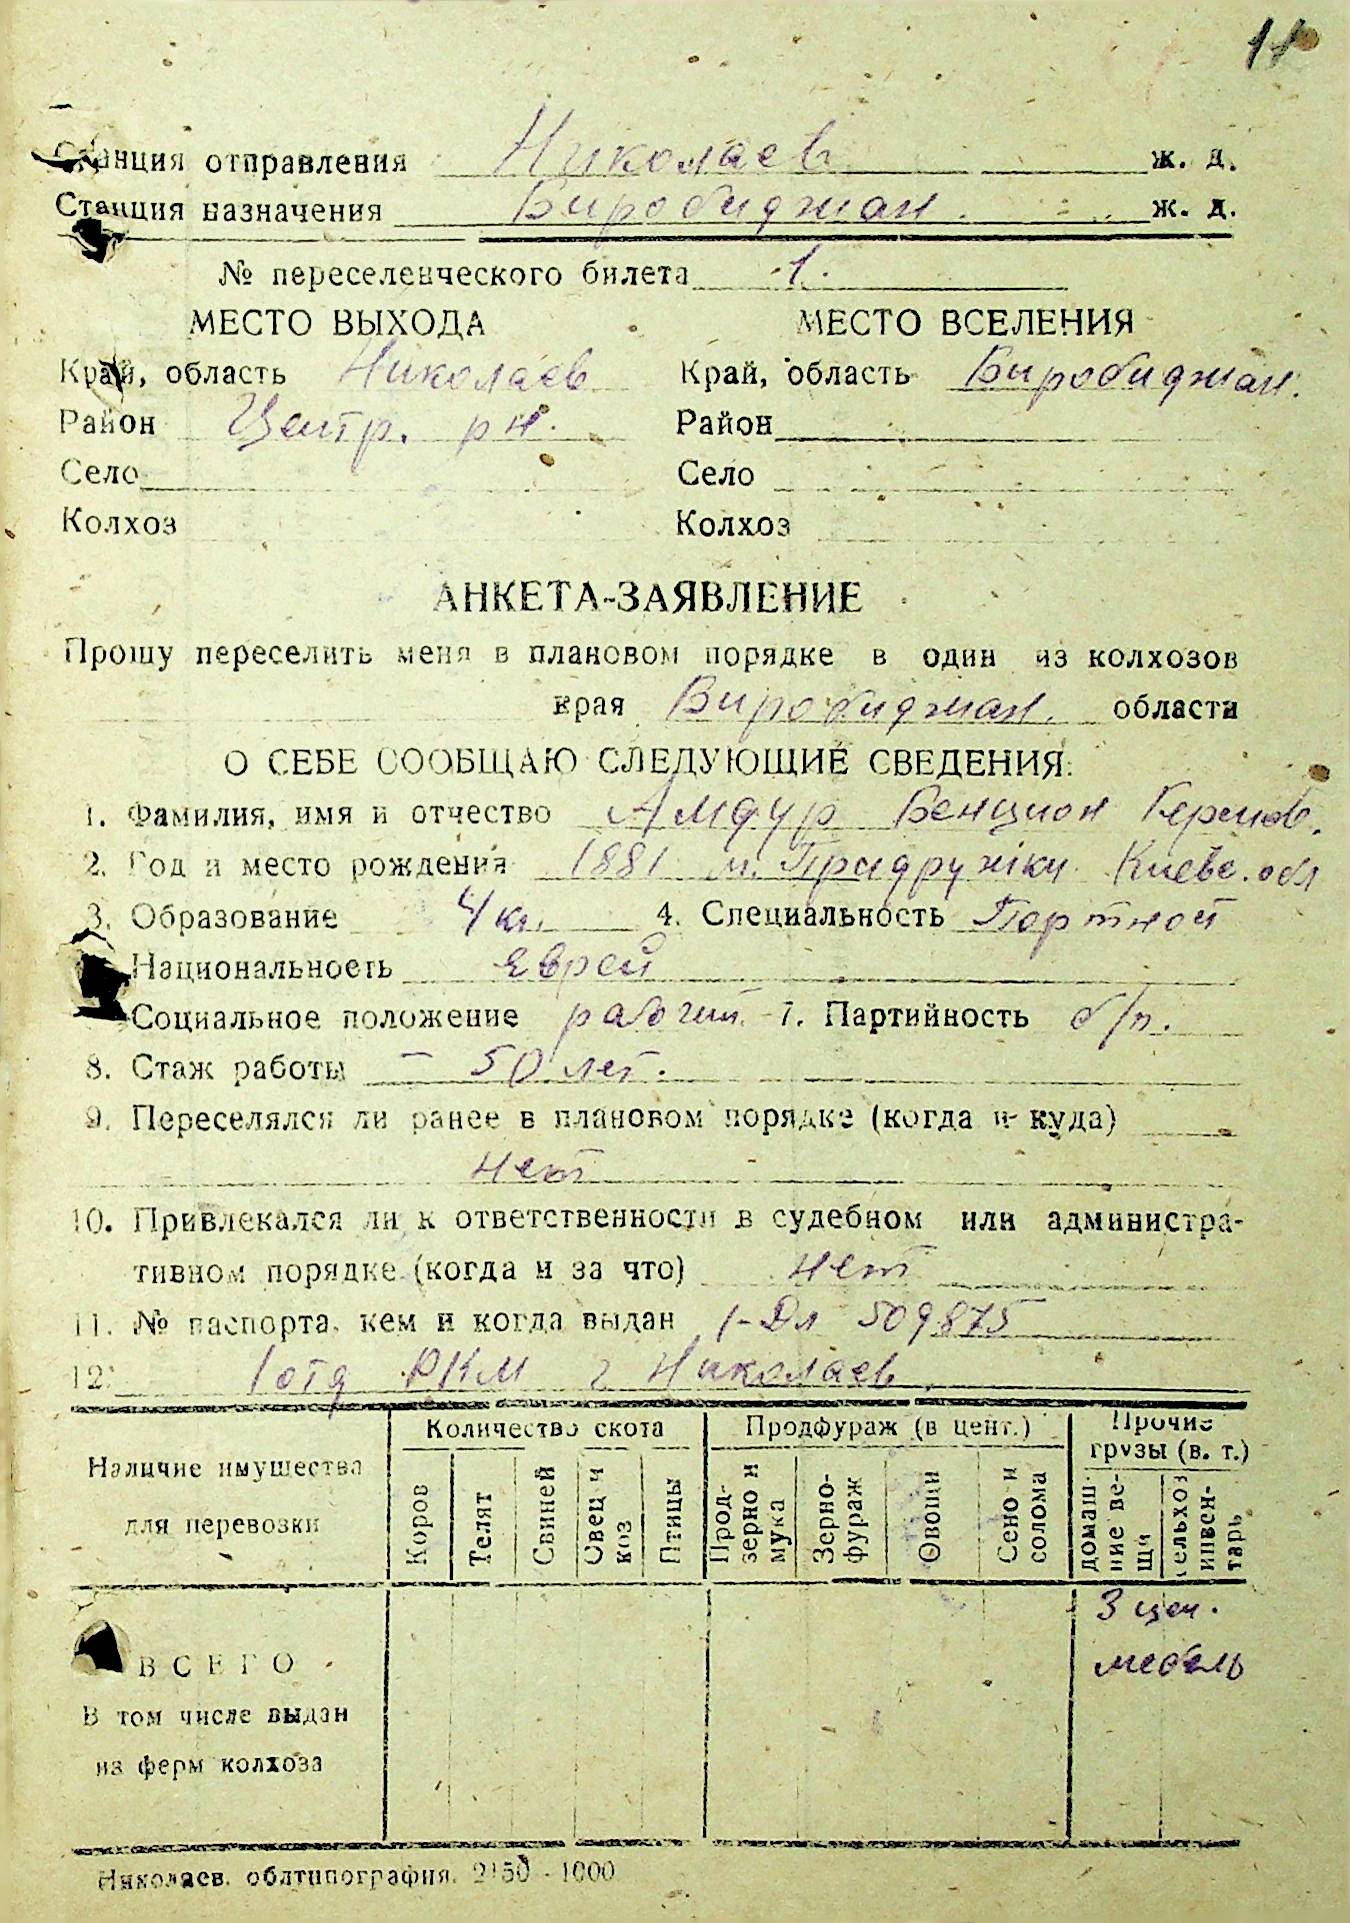 11
Станция отправления Николаев ж. д.
Станция назначения Биробиджан. ж. д.
№ переселенческого билета 1.
МЕСТО ВЫХОДА МЕСТО ВСЕЛЕНИЯ
Край, область Николаев Край, область Биробиджан.
Район Центр. рн. Район
Село Село
Колхоз Колхоз
АНКЕТА-ЗАЯВЛЕНИЕ
Прошу переселить меня в плановом порядке в один из колхозов
края Биробиджан. области
О СЕБЕ СООБЩАЮ СЛЕДУЮЩИЕ СВЕДЕНИЯ:
1. Фамилия, имя и отчество Амдур Бенцион Гермов.
2. Год и место рождения 1881 м. Киевс. обл
3. Образование 4 кл. 4. Специальность Портной
Национальность еврей
Социальное положение рабочий 7. Партийность б/п.
8. Стаж работы – 50 лет.
9. Переселялся ли ранее в плановом порядке (когда и куда)
нет
10. Привлекался ли к ответственности в судебном или администра-
тивном порядке (когда и за что) нет
11. № паспорта, кем и когда выдан 509875
12. 1 отд РКМ г Николаев.
Наличие имущества для перевозки
Количество скота
Коров
Телят
Свиней
Овец и коз
Птицы
Продфураж (в цент.)
Прод-зерно и мука
Зерно-фураж
Овощи
Сено и солома
Прочие грузы (в. т.)
домаш-ние ве-щи
сельхоз инвен-тарь
ВСЕГО 3 цен.
мебель
В том числе выдан
из ферм колхоза
Николаев. облтипография. 2150 - 1000